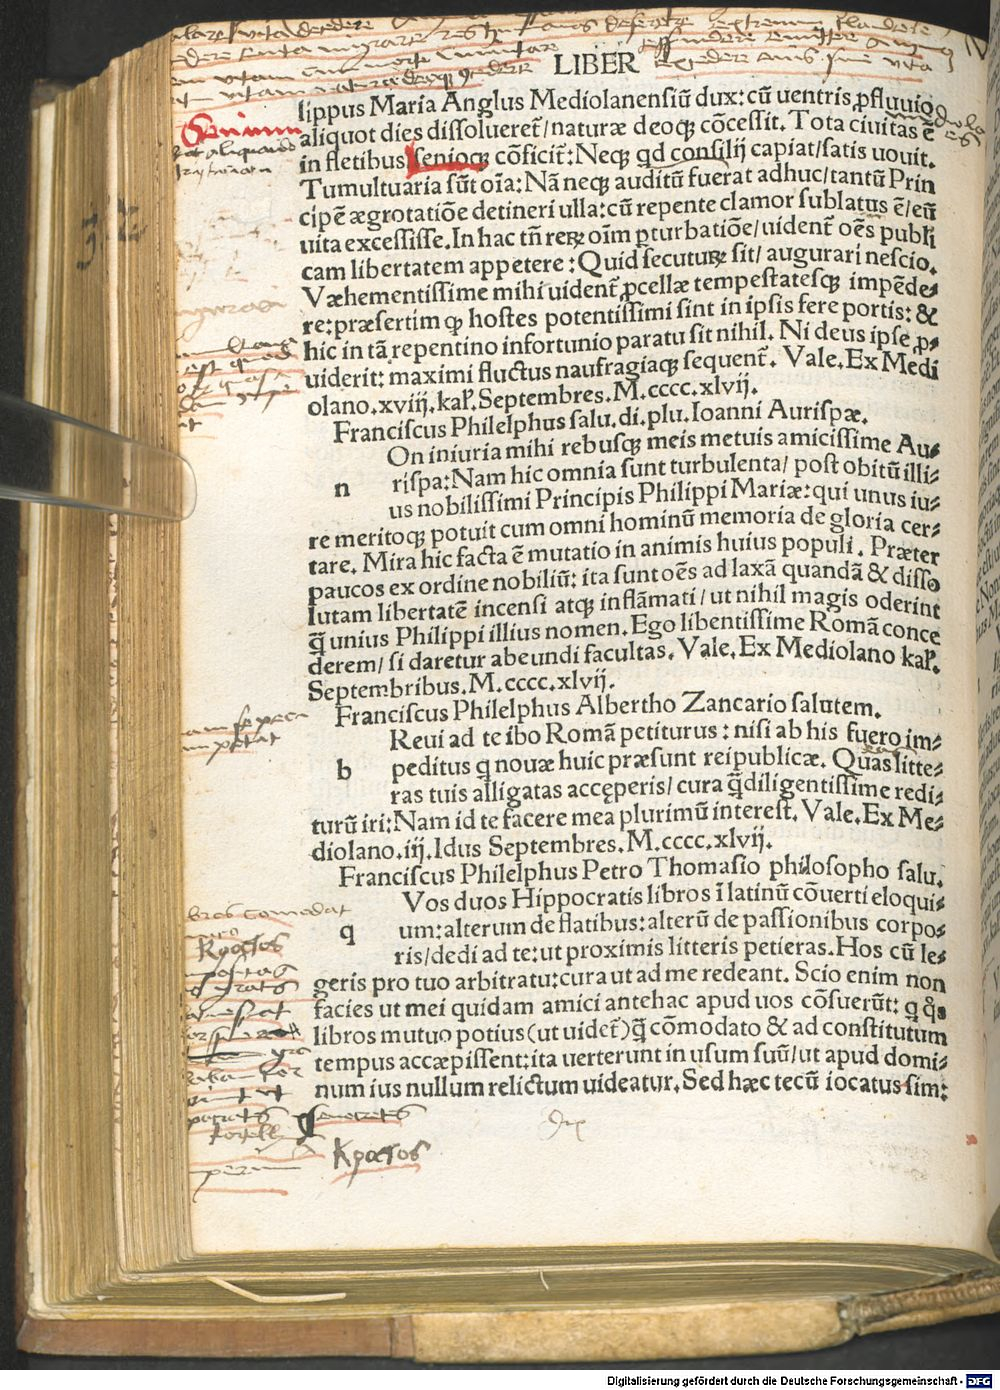 LIBER
lippus Maria Anglus Mediolanensiū dux: cū uentris ꝓfluuio
aliquot dies dissolueret̄/ naturæ deoqꝫ cōcessit. Tota ciuitas ē
in fletibus senioqꝫ cōficit̄: Neqꝫ qd consilij capiat/ satis uouit.
Tumultuaria sūt oīa: Nā neqꝫ auditū fuerat adhuc/ tantū Prin
cipē ægrotatiōe detineri ulla: cū repente clamor sublatus ē/ eū
uita excessisse. In hac tn̄ reꝝ oīm ꝑturbatiōe/ uident̄ oēs publi
cam libertatem appetere: Quid secutuꝝ sit/ augurari nescio.
Væhementissime mihi uident̄ ꝓcellæ tempestatesqꝫ impēde⸗
re: præsertim qꝫ hostes potentissimi sint in ipsis fere portis: &
hic in tā repentino infortunio paratu sit nihil. Ni deus ipse ꝓ⸗
uiderit: maximi fluctus naufragiaqꝫ sequent̄. Vale. Ex Medi
olano. xviij. kal̄. Septembres. M. cccc. xlvij.
Franciscus Philelphus salu. di. plu. Ioanni Aurispæ.
On iniuria mihi rebusqꝫ meis metuis amicissime Au⸗
n rispa: Nam hic omnia sunt turbulenta/ post obitū illi⸗
us nobilissimi Principis Philippi Mariæ: qui unus iu⸗
re meritoqꝫ potuit cum omni hominū memoria de gloria cer⸗
tare. Mira hic facta ē mutatio in animis huius populi. Præter
paucos ex ordine nobiliū: ita sunt oēs ad laxā quandā & disso
lutam libertatē incensi atqꝫ inflāmati/ ut nihil magis oderint
q̄ unius Philippi illius nomen. Ego libentissime Romā conce
derem/ si daretur abeundi facultas. Vale. Ex Mediolano kal̄.
Septembribus. M. cccc. xlvij.
Franciscus Philelphus Albertho Zancario salutem.
Reui ad te ibo Romā petiturus: nisi ab his fuero im⸗
b peditus q nouæ huic præsunt reipublicæ. Quas litte⸗
ras tuis alligatas accęperis/ cura q̄diligentissime redi⸗
turū iri: Nam id te facere mea plurimū interest. Vale. Ex Me⸗
diolano. iij. Idus Septembres. M. cccc. xlvij.
Franciscus Philelphus Petro Thomasio philosopho salu.
Vos duos Hippocratis libros ī latinū cōuerti eloqui⸗
q um: alterum de flatibus: alterū de passionibus corpo⸗
ris/ dedi ad te: ut proximis litteris petieras. Hos cū le⸗
geris pro tuo arbitratu: cura ut ad me redeant. Scio enim non
facies ut mei quidam amici antehac apud uos cōsuerūt: q qͦs
libros mutuo potius (ut uidet̄) q̄ cōmodato & ad constitutum
tempus accæpissent: ita uerterunt in usum suū/ ut apud domi⸗
num ius nullum relictum uideatur. Sed hæc tecū iocatus sim:
Digitalisierung gefördert durch die Deutsche Forschungsgemeinschaft - DFG